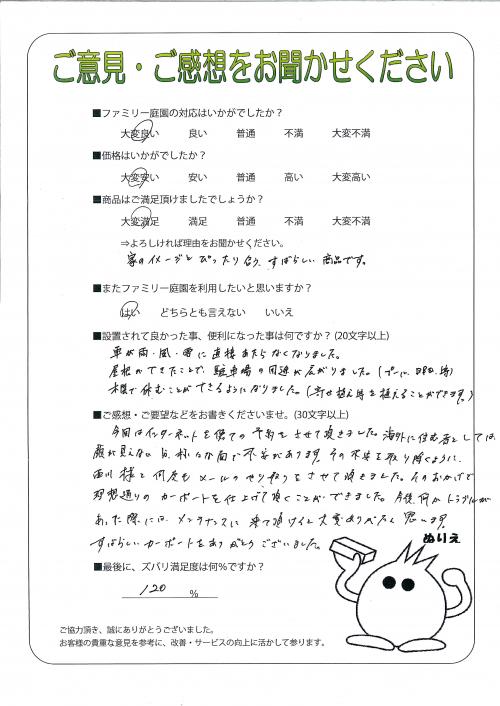 ご意見・ご感想をお聞かせください
■ファミリー庭園の対応はいかがでしたか？
大変良い 良い 普通 不満 大変不満
■価格はいかがでしたか？
大変安い 安い 普通 高い 大変高い
■商品はご満足頂けましたでしょうか？
大変満足 満足 普通 不満 大変不満
⇒よろしければ理由をお聞かせください。
家のイメージとぴったり合う、すばらしい商品です。
■またファミリー庭園を利用したいと思いますか？
はい どちらとも言えない いいえ
■設置されて良かった事、便利になった事は何ですか？(20文字以上)
車が雨・風・雪に直接あたらなくなりました。
屋根ができたことで、駐車場の用途が広がりました。(プール、BBQ、等)
木陰で休むことができるようになりました。(寄せ植え等を植えることができます。)
■ご感想・ご要望などをお書きくださいませ。(30文字以上)
今回はインターネットを使ての予約をさせて頂きました。海外に住む者としては、
顔が見えない分、様々な面で不安があります。その不安を取り除くように、
西川様と何度もメールのやり取りをさせて頂きました。そのおかげで
理想通りのカーポートを仕上げて頂くことができました。今後、何かトラブルが
あった際には、メンテナンスに来て頂けると大変ありがたく思います。
すばらしいカーポートをありがとうございました。
ぬりえ
■最後に、ズバリ満足度は何%ですか？
120 %
ご協力頂き、誠にありがとうございました。
お客様の貴重な意見を参考に、改善・サービスの向上に活かして参ります。